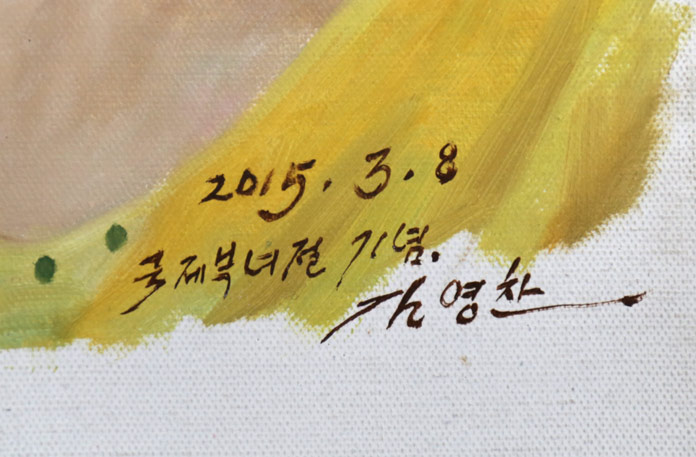 2015. 3. 8
국제부녀절 기념.
김영찬